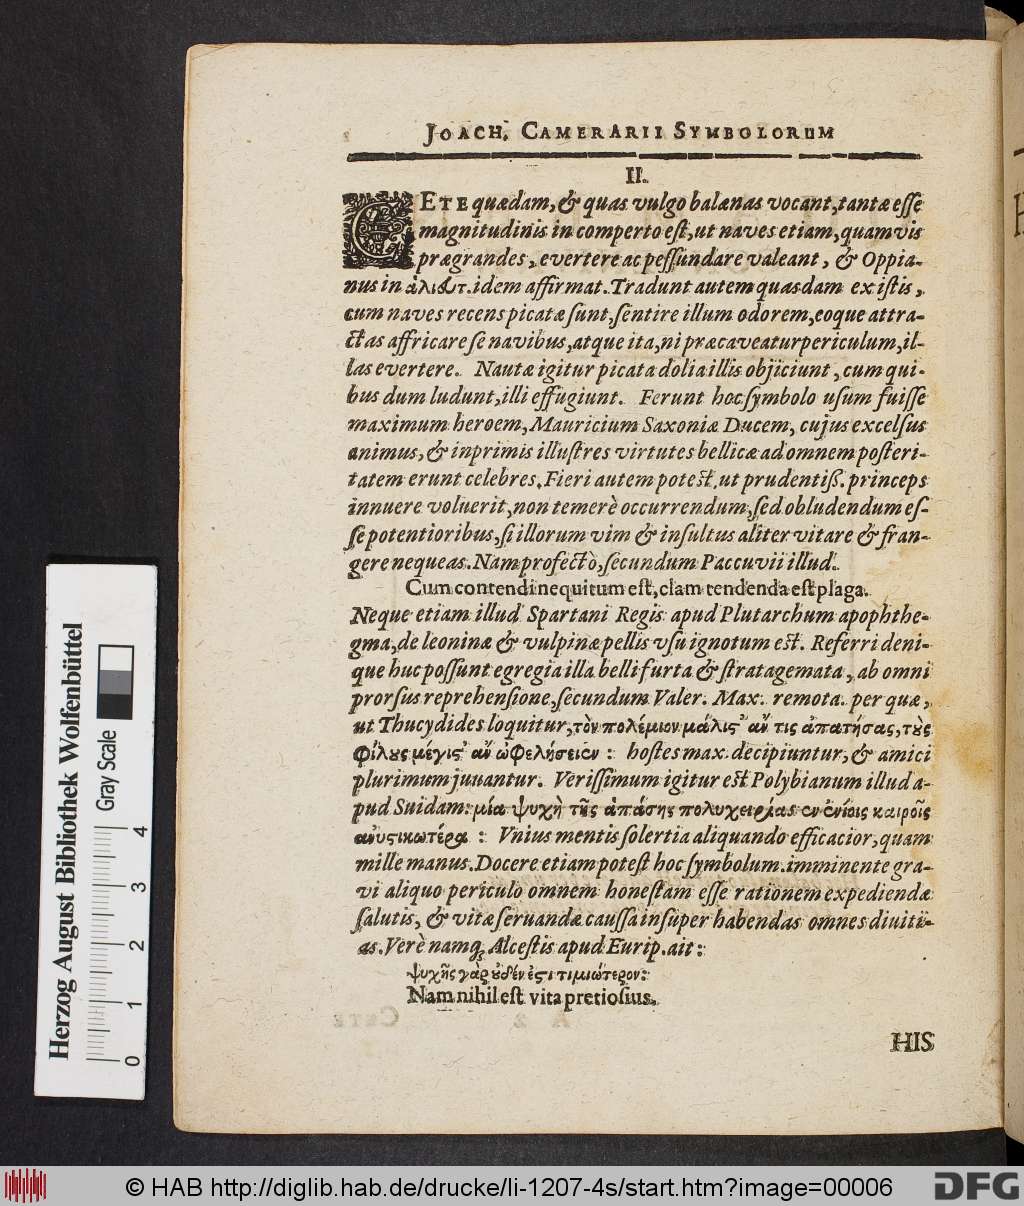 JOACH. CAMERARII SYMBOLORUM
II.
CETE quædam, & quas vulgo balænas vocant, tantæ esse
magnitudinis in comperto est, ut naves etiam, quamvis
prægrandes, evertere ac pessundare valeant, & Oppia-
nus in ἁλιευτ. idem affirmat. Tradunt autem quasdam ex istis,
cum naves recens picatæ sunt, sentire illum odorem, eoque attra-
ctas affricare se navibus, atque ita, ni præcaveatur periculum, il-
las evertere. Nautæ igitur picata dolia illis objiciunt, cum qui-
bus dum ludunt, illi effugiunt. Ferunt hoc symbolo usum fuisse
maximum heroem, Mauricium Saxoniæ Ducem, cujus excelsus
animus, & inprimis illustres virtutes bellicæ ad omnem posteri-
tatem erunt celebres. Fieri autem potest, ut prudentiß. princeps
innuere voluerit, non temerè occurrendum, sed obludendum es-
se potentioribus, si illorum vim & insultus aliter vitare & fran-
gere nequeas. Nam profectò, secundum Paccuvii illud.
Cum contendi nequitum est, clam tendenda est plaga.
Neque etiam illud Spartani Regis apud Plutarchum apophthe-
gma, de leoninæ & vulpinæ pellis vsu ignotum est. Referri deni-
que huc possunt egregia illa belli furta & stratagemata, ab omni
prorsus reprehensione, secundum Valer. Max. remota. per quæ,
ut Thucydides loquitur, τὸν πολέμιον μάλιστ' ἄν τις ἀπατήσας, τοὺς
φίλους μέγιστ' ἄν ὠφελήσειεν: hostes max. decipiuntur, & amici
plurimum juuantur. Verissimum igitur est Polybianum illud a-
pud Suidam: μία ψυχὴ τῆς ἁπάσης πολυχειρίας ἐν ἐνίοις καιροῖς
ἀνυστικωτέρα : Vnius mentis solertia aliquando efficacior, quam
mille manus. Docere etiam potest hoc symbolum imminente gra-
vi aliquo periculo omnem honestam esse rationem expediendæ
salutis, & vitæ seruandæ caussa insuper habendas omnes diuiti-
as. Verè namq; Alcestis apud Eurip. ait:
ψυχῆς γὰρ οὐδέν ἐστι τιμιώτερον:
Nam nihil est vita pretiosius.
HIS
Herzog August Bibliothek Wolfenbüttel
Gray Scale
0 1 2 3 4
© HAB http://diglib.hab.de/drucke/li-1207-4s/start.htm?image=00006
DFG